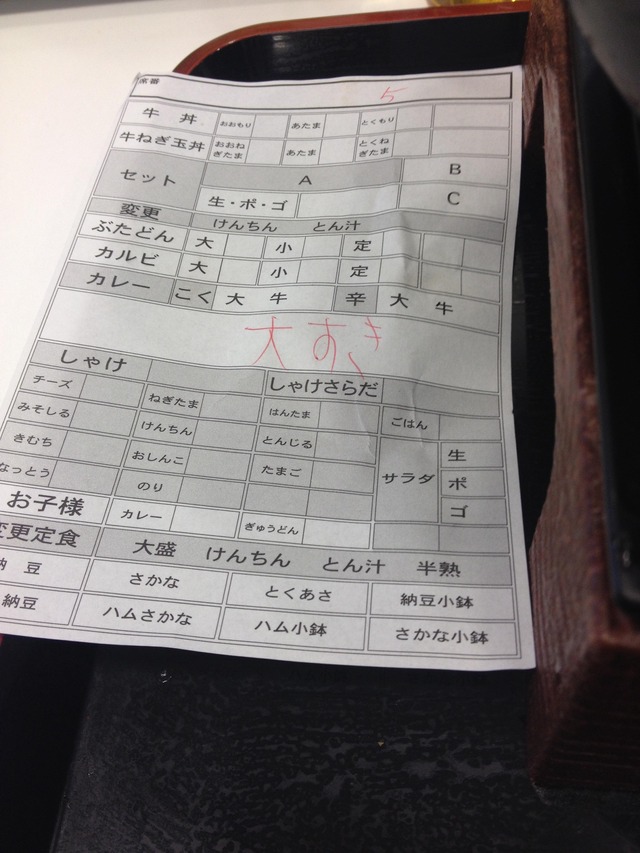 席番
5
牛丼 おおもり あたま とくもり
牛ねぎ玉丼 おおねぎたま あたま とくねぎたま
セット A B
生・ポ・ゴ C
変更 けんちん とん汁
ぶたどん 大 小 定
カルビ 大 小 定
カレー こく 大 牛 辛 大 牛
大すき
しゃけ しゃけさらだ
チーズ ねぎたま はんたま ごはん
みそしる けんちん とんじる サラダ 生
きむち おしんこ たまご ポ
なっとう のり ゴ
お子様 カレー ぎゅうどん
変更定食 大盛 けんちん とん汁 半熟
納豆 さかな とくあさ 納豆小鉢
納豆 ハムさかな ハム小鉢 さかな小鉢